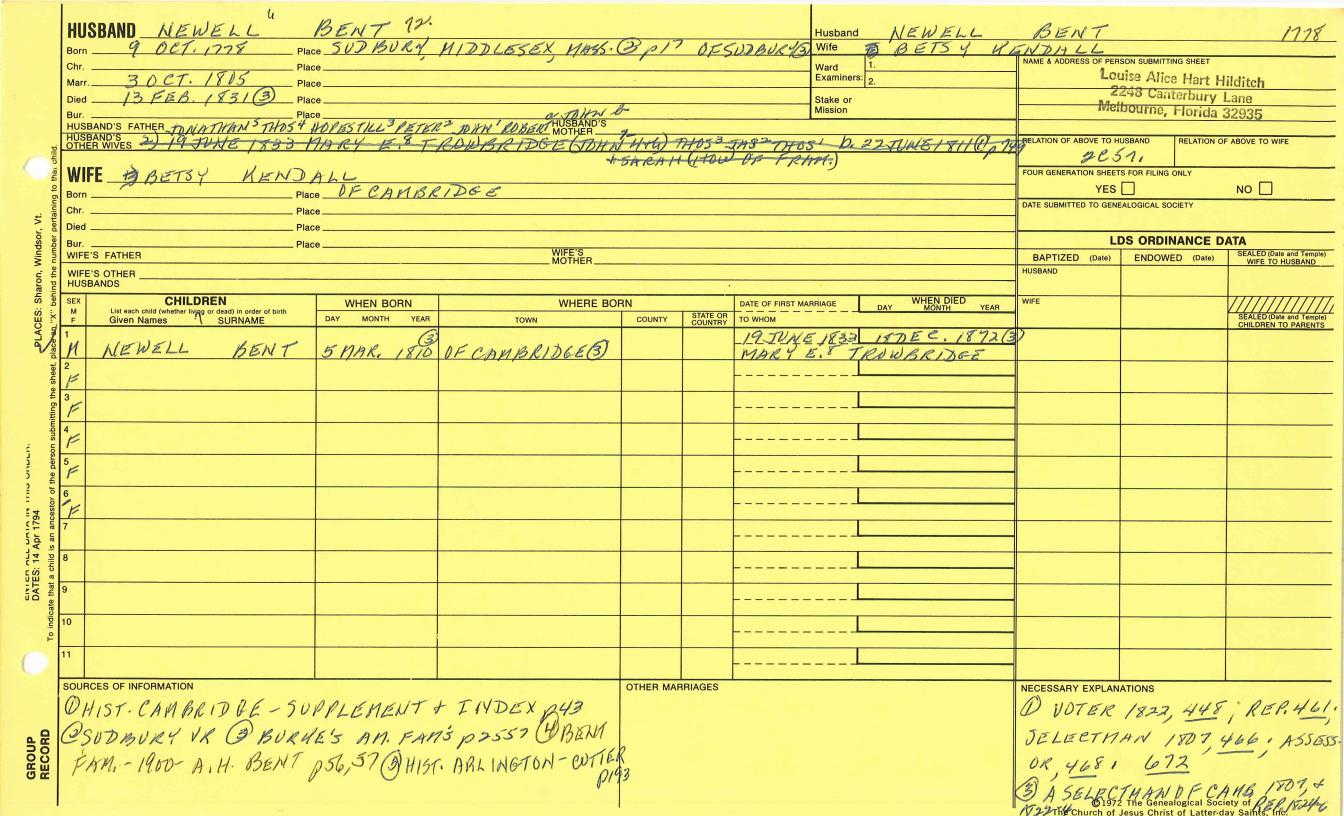 HUSBAND NEWELL 6 BENT 72.
Born 9 OCT. 1778 Place SUDBURY, MIDDLESEX, MASS. ② p17 OF SUDBURY ③
Chr. Place
Marr. 3 OCT. 1805 Place
Died 13 FEB. 1831 ③ Place
Bur. Place
HUSBAND'S FATHER JONATHAN⁵ THOS⁴ HOPESTILL³ PETER² JOHN¹ ROBERT HUSBAND'S MOTHER
HUSBAND'S OTHER WIVES 2) 19 JUNE 1833 MARY E.⁸ TROWBRIDGE (JOHN THOS³ JAS² THOS¹ b. 22 JUNE 1811
+ SARAH (HOW OF FRAM.)
WIFE BETSY KENDALL
Born Place OF CAMBRIDGE
Chr. Place
Died Place
Bur. Place
WIFE'S FATHER WIFE'S MOTHER
WIFE'S OTHER HUSBANDS
Husband NEWELL BENT 1778
Wife BETSY KENDALL
Ward Examiners: 1.
2.
Stake or Mission
NAME & ADDRESS OF PERSON SUBMITTING SHEET
Louise Alice Hart Hilditch
2248 Canterbury Lane
Melbourne, Florida 32935
RELATION OF ABOVE TO HUSBAND RELATION OF ABOVE TO WIFE
2C5r.
FOUR GENERATION SHEETS FOR FILING ONLY
YES NO
DATE SUBMITTED TO GENEALOGICAL SOCIETY
LDS ORDINANCE DATA
BAPTIZED (Date) ENDOWED (Date) SEALED (Date and Temple) WIFE TO HUSBAND
HUSBAND
WIFE
SEALED (Date and Temple) CHILDREN TO PARENTS
SEX M F
CHILDREN
List each child (whether living or dead) in order of birth
Given Names 7 SURNAME
WHEN BORN
DAY MONTH YEAR
WHERE BORN
TOWN COUNTY STATE OR COUNTRY
DATE OF FIRST MARRIAGE
TO WHOM
WHEN DIED
DAY MONTH YEAR
1 M NEWELL BENT 5 MAR. 1810 ③ OF CAMBRIDGE ③ 19 JUNE 1833 15 DEC. 1872 ③
MARY E.⁸ TROWBRIDGE
2 F
3 F
4 F
5 F
6 F
7
8
9
10
11
SOURCES OF INFORMATION
① HIST. CAMBRIDGE - SUPPLEMENT + INDEX p43
② SUDBURY VR ③ BURKE'S AM. FAM'S p2557 ④ BENT
FAM. - 1900 - A.H. BENT p56,57 ⑤ HIST. ARLINGTON - CUTTER
p193
OTHER MARRIAGES
NECESSARY EXPLANATIONS
① VOTER 1822, 448; REP. 461.
SELECTMAN 1807, 466. ASSESS-
OR, 468. 672
⑤ A SELECTMAN OF CAMB 1807, +
©1972 The Genealogical Society of
The Church of Jesus Christ of Latter-day Saints, Inc.
PLACES: Sharon, Windsor, Vt.
DATES: 14 Apr 1794
ENTER ALL DATA IN THIS ORDER:
To indicate that a child is an ancestor of the person submitting the sheet, place an "X" behind the number pertaining to that child.
GROUP RECORD